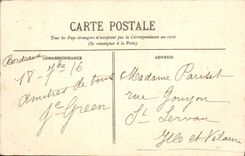 CARTE POSTALE
Tous les Pays étrangers n'acceptent pas la Correspondance au recto
(Se renseigner à la Poste)
CORRESPONDANCE
ADRESSE
Bordeaux
18 - 7bre 16
amitiés de tous
Green
Madame Pariset
rue Gouyon
St Servan
Ille et Vilaine